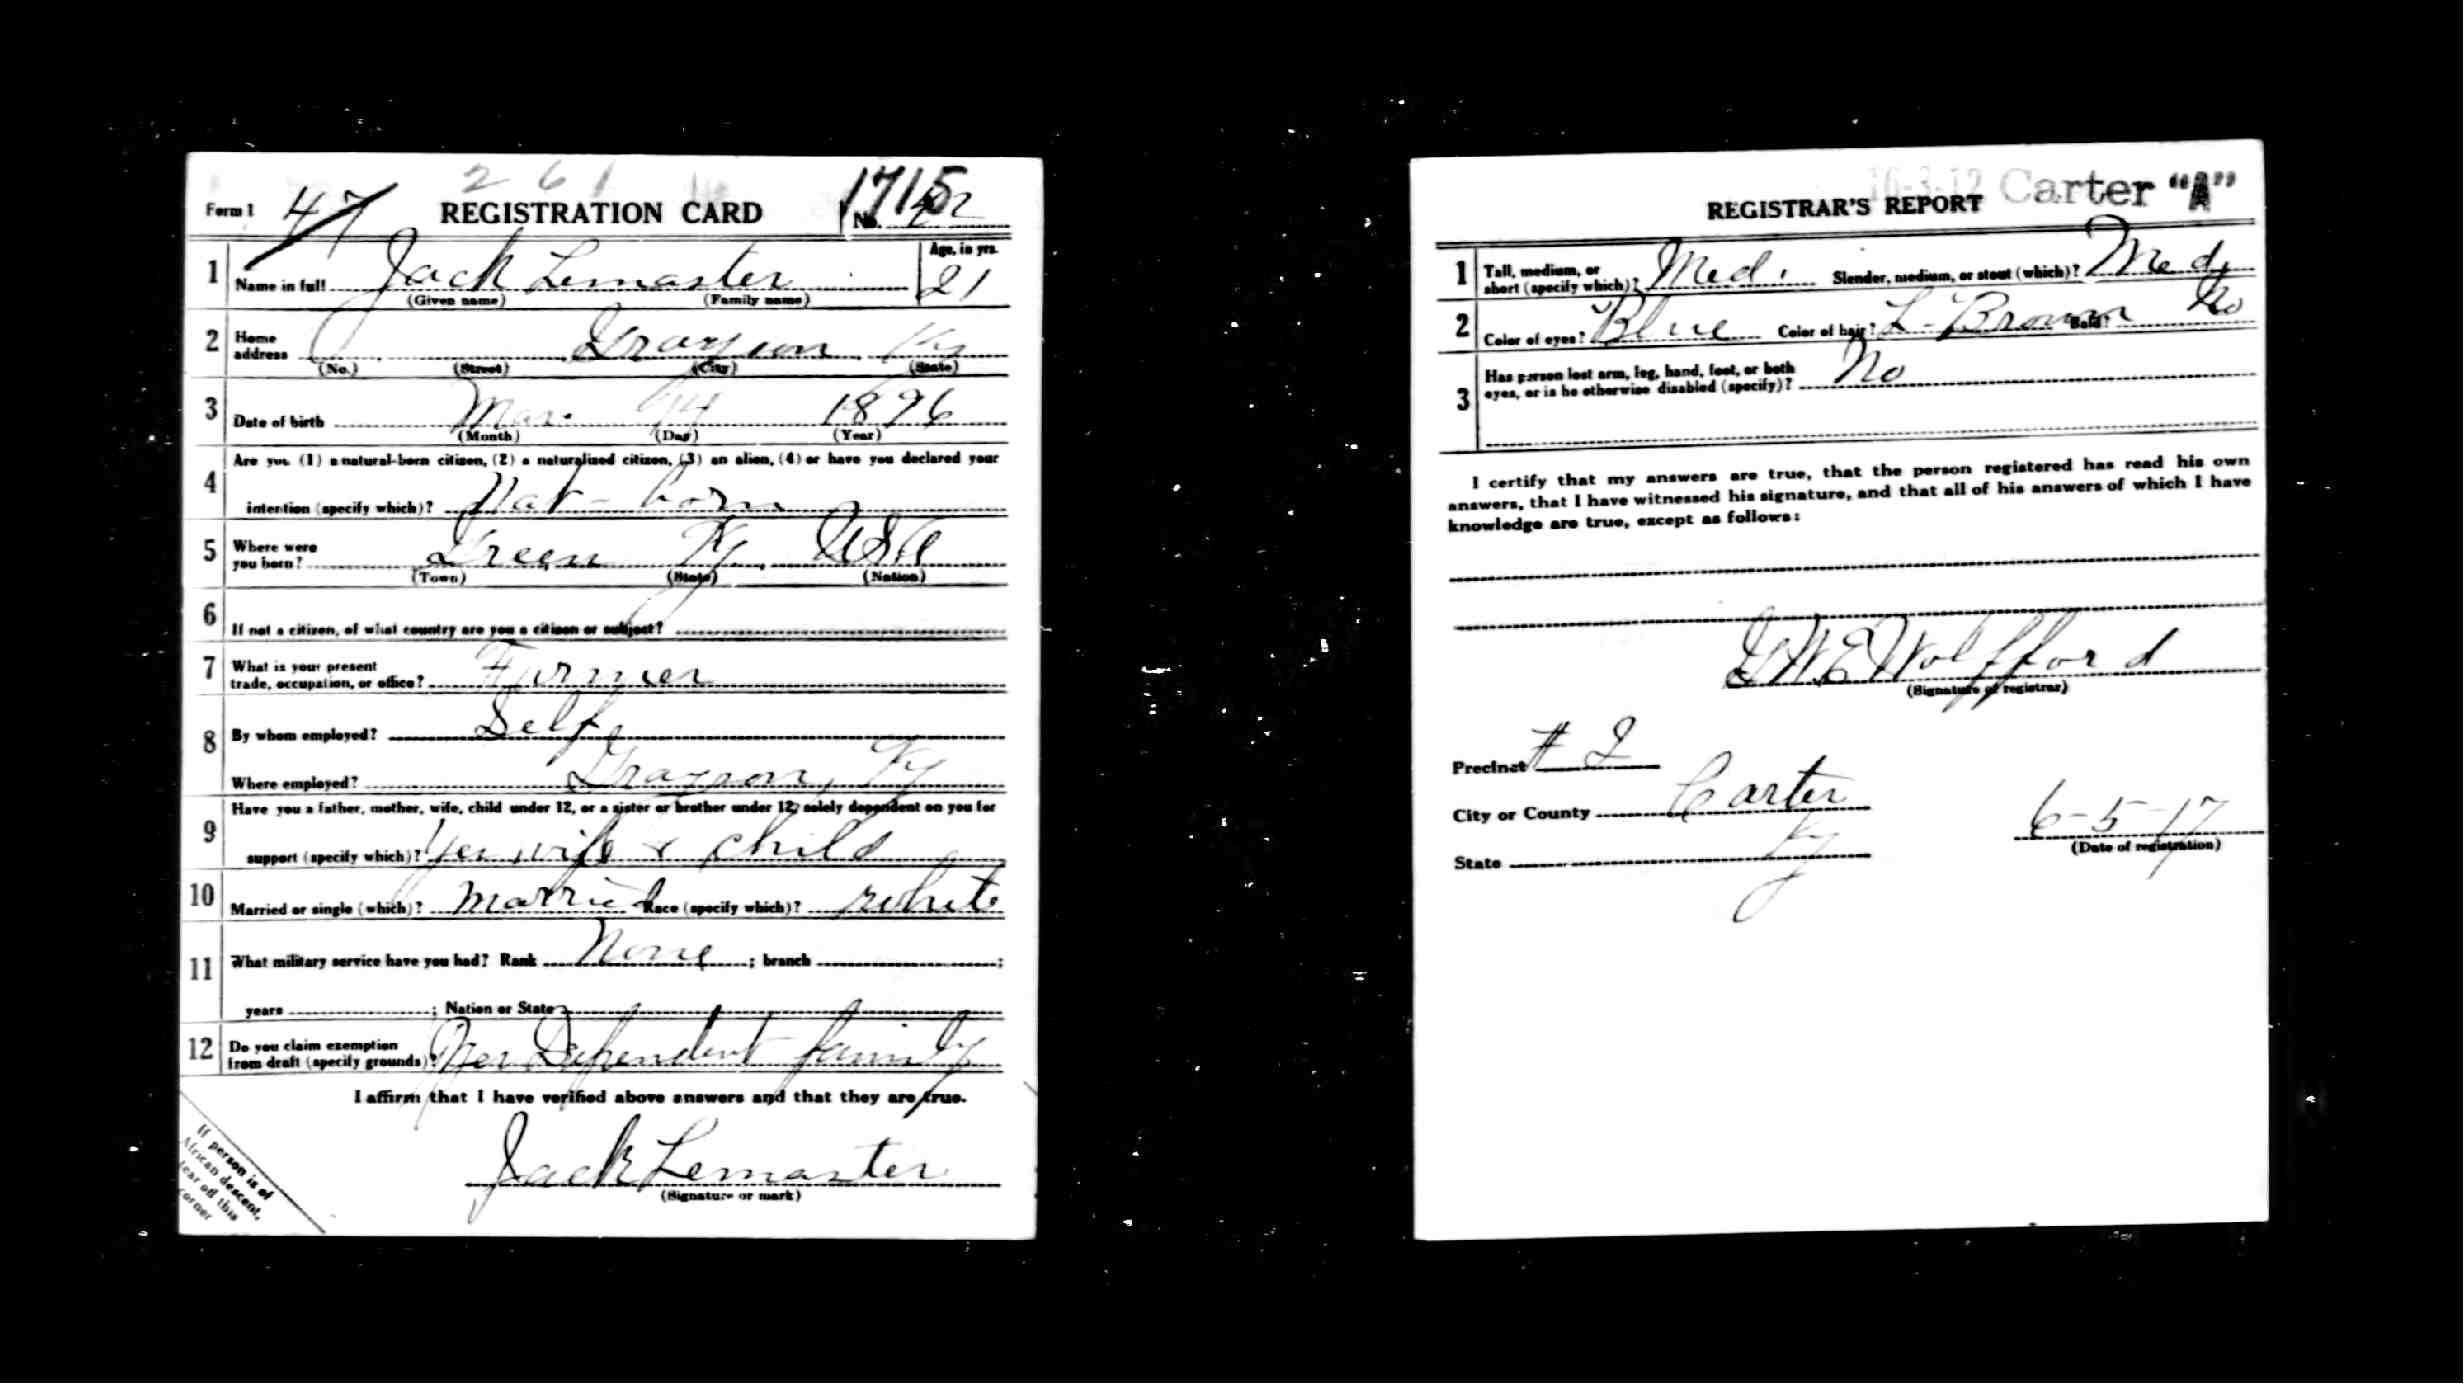 2 6 1
Form 1 47 REGISTRATION CARD 1715 No. 42
1 Name in full Jack Lemaster Age, in yrs. 21
(Given name) (Family name)
2 Home address Grayson Ky
(No.) (Street) (City) (State)
3 Date of birth Mar. 1896
(Month) (Day) (Year)
4 Are you (1) a natural-born citizen, (2) a naturalized citizen, (3) an alien, (4) or have you declared your
intention (specify which)? Nat-born
5 Where were you born? Green Ky USA
(Town) (State) (Nation)
6 If not a citizen, of what country are you a citizen or subject?
7 What is your present trade, occupation, or office? Farmer
8 By whom employed? Self
Where employed? Grayson, Ky
9 Have you a father, mother, wife, child under 12, or a sister or brother under 12, solely dependent on you for
support (specify which)? Yes wife & child
10 Married or single (which)? Married Race (specify which)? white
11 What military service have you had? Rank None ; branch ;
years ; Nation or State
12 Do you claim exemption from draft (specify grounds)? Yes Dependent family
I affirm that I have verified above answers and that they are true.
Jack Lemaster
(Signature or mark)
If person is of
African descent,
tear off this
corner
16-3-12 Carter "A"
REGISTRAR'S REPORT
1 Tall, medium, or short (specify which)? Med. Slender, medium, or stout (which)? Med
2 Color of eyes? Blue Color of hair? L-Brown Bald? No
3 Has person lost arm, leg, hand, foot, or both eyes, or is he otherwise disabled (specify)? No
I certify that my answers are true, that the person registered has read his own
answers, that I have witnessed his signature, and that all of his answers of which I have
knowledge are true, except as follows:
G.W.E. Wolfford
(Signature of registrar)
Precinct # 2
City or County Carter
State Ky
6-5-17
(Date of registration)